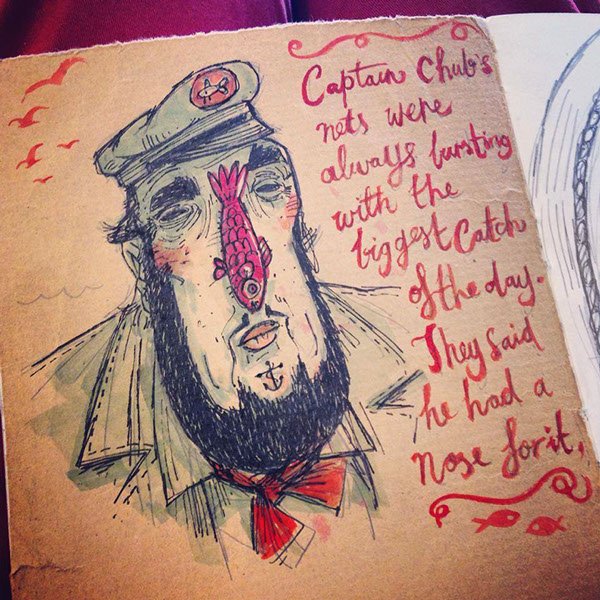 Captain Chub's
nets were
always bursting
with the
biggest Catch
of the day.
They said
he had a
Nose for it.